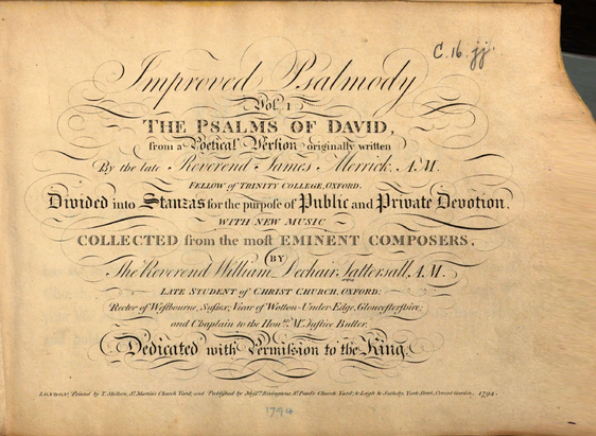 C. 16. jj.
Improved Psalmody
Vol. 1
THE PSALMS OF DAVID,
from a Poetical Version originally written
By the late Reverend James Merrick, A.M.
FELLOW of TRINITY COLLEGE, OXFORD.
Divided into Stanzas for the purpose of Public and Private Devotion,
WITH NEW MUSIC
COLLECTED from the most EMINENT COMPOSERS,
BY
The Reverend William Dechair Tattersall, A.M.
LATE STUDENT of CHRIST CHURCH, OXFORD;
Rector of Westbourne, Sussex; Vicar of Wotton-Under-Edge, Glocestershire;
and Chaplain to the Honble. Mr. Justice Buller.
Dedicated with Permission to the King.
LONDON: Printed by T. Skillern, St. Martins Church Yard, and Published by Messrs. Rivingtons St. Pauls Church Yard; & Leigh & Sotheby, York Street, Covent Garden, 1794.
1794